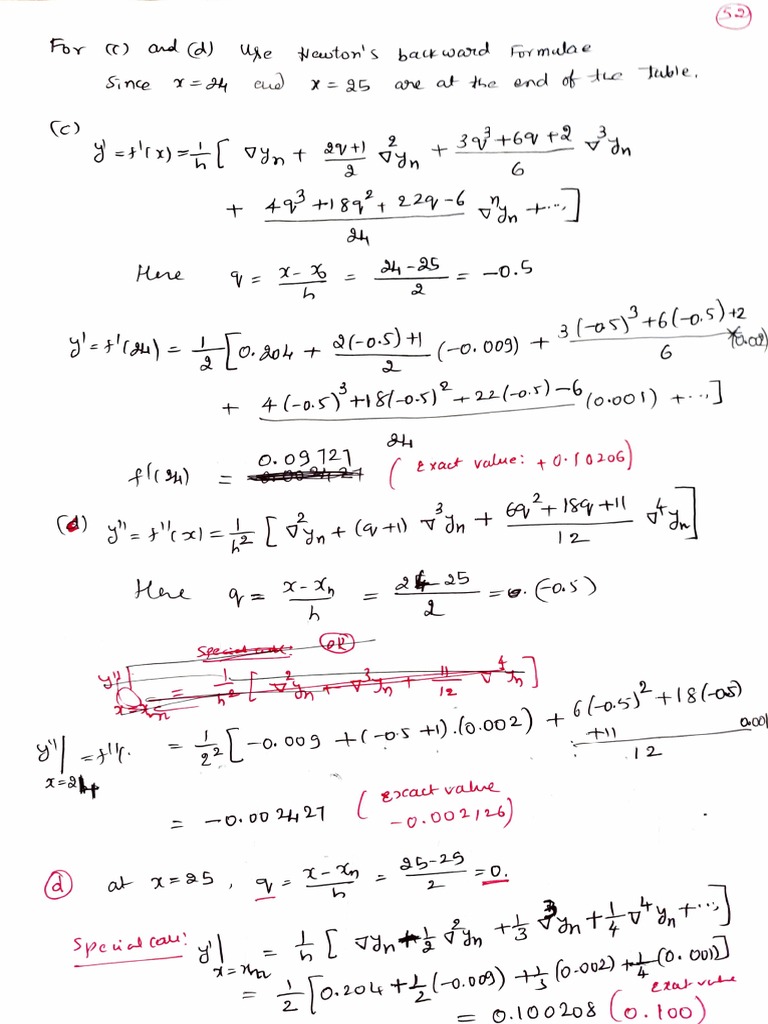 52
For (c) and (d) use Newton's backward Formulae
Since x=24 and x=25 are at the end of the table.
(c)
y' = f'(x) = 1/h [ ∇yn + (2q+1)/2 ∇²yn + (3q³+6q+2)/6 ∇³yn
+ (4q³+18q²+22q-6)/24 ∇ⁿyn + ...]
Here q = (x-x₀)/h = (24-25)/2 = -0.5
y' = f'(24) = 1/2 [0.204 + (2(-0.5)+1)/2 (-0.009) + (3(-0.5)³+6(-0.5)+2)/6 ×(0.002)
+ (4(-0.5)³+18(-0.5)²+22(-0.5)-6)/24 (0.001) + ...]
f'(24) = 0.09727 (Exact value: +0.10206)
(d) y'' = f''(x) = 1/h² [ ∇²yn + (q+1) ∇³yn + (6q²+18q+11)/12 ∇⁴yn]
Here q = (x-xn)/h = (24-25)/2 = (-0.5)
Special case: OR
y''| x=xn = 1/h² [ ∇²yn + ∇³yn + 11/12 ∇⁴yn ]
y''| x=24 = f''( = 1/2² [-0.009 + (-0.5+1).(0.002) + (6(-0.5)²+18(-0.5)+11)/12 0.001
= -0.002427 (Excact value -0.002126)
(d) at x=25, q = (x-xn)/h = (25-25)/2 = 0.
Special case: y'| x=xn = 1/h [ ∇yn + 1/2 ∇²yn + 1/3 ∇³yn + 1/4 ∇⁴yn + ...]
= 1/2 [0.204 + 1/2 (-0.009) + 1/3 (0.002) + 1/4 (0.001)]
= 0.100208 (Exat value 0.100)